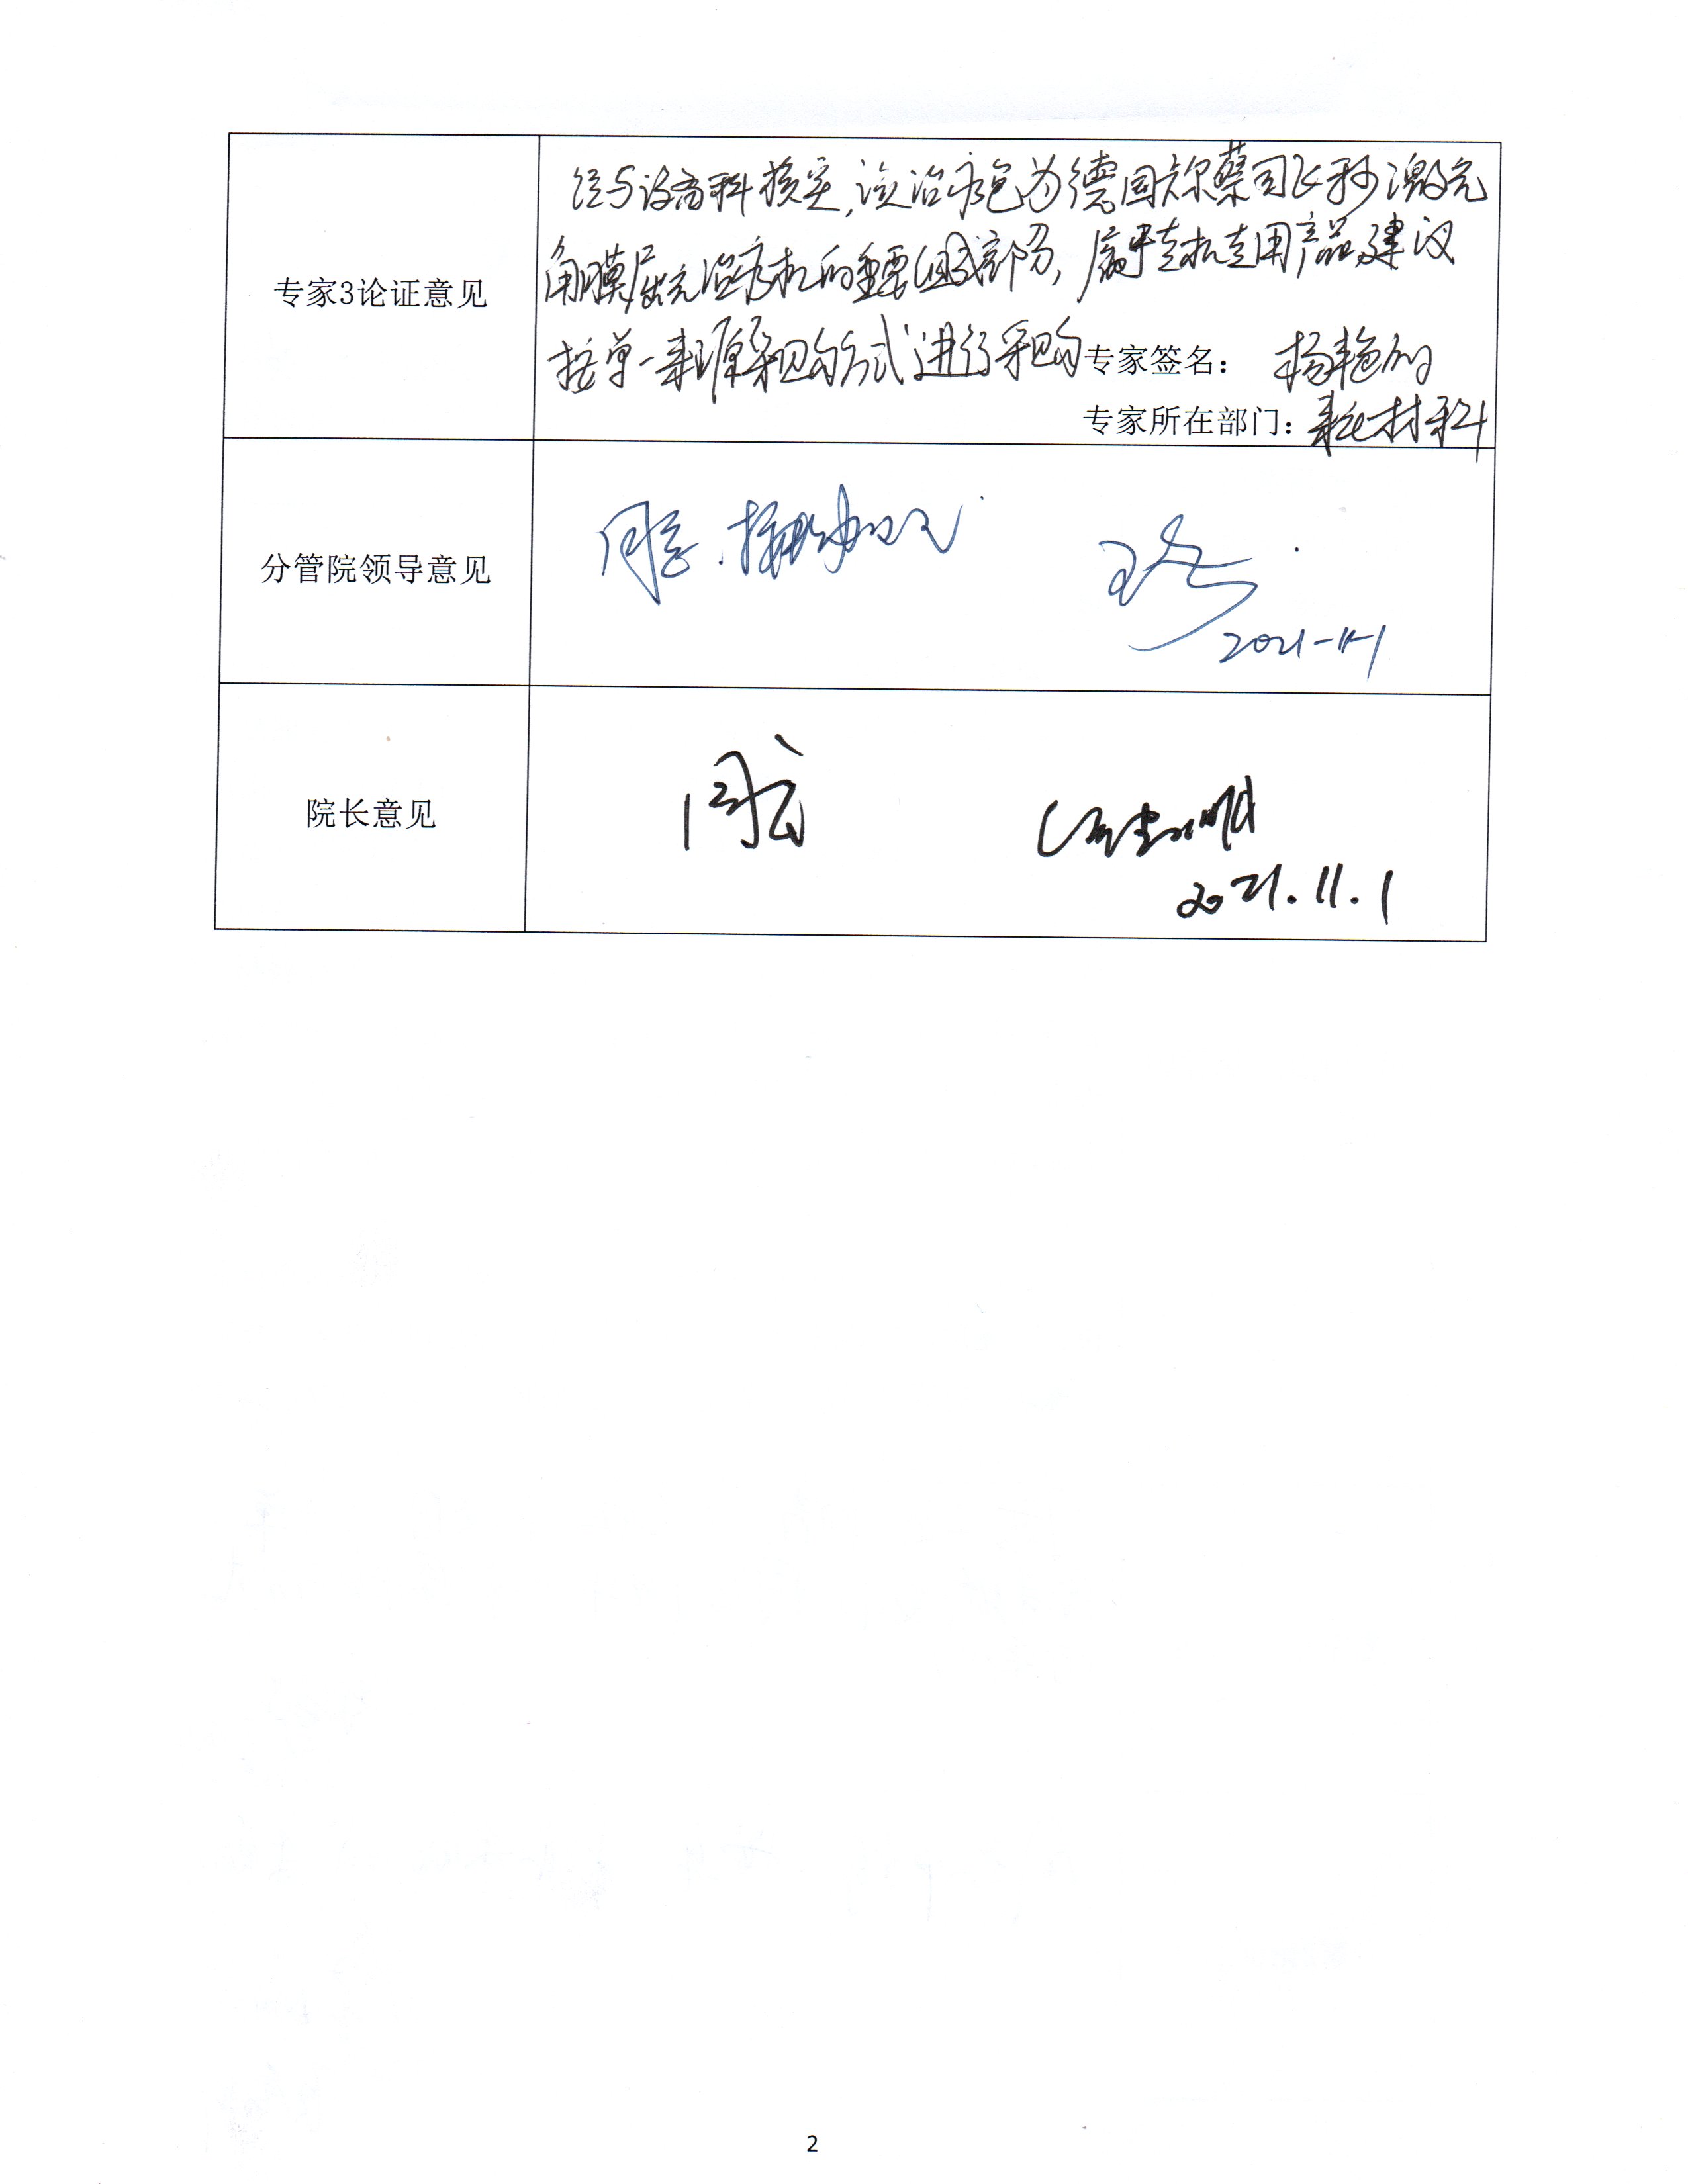 专家3论证意见
经与设备科核实,该治疗包为德国卡尔蔡司飞秒激光
角膜屈光治疗机的重要组成部分,属于专机专用产品,建议
按单一来源采购方式进行采购
专家签名:杨艳
专家所在部门:耗材科
分管院领导意见
同意.
2021-11-1
院长意见
同意
2021.11.1
2